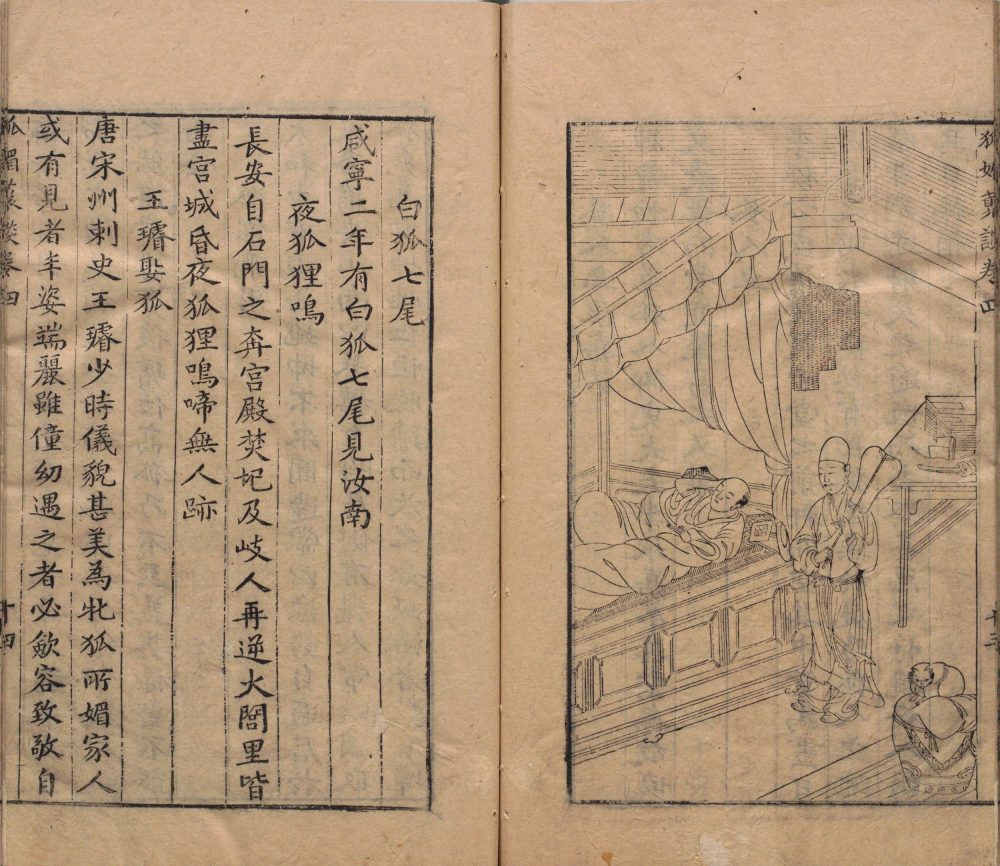 狐媚叢談卷四
十三
白狐七尾
咸寧二年有白狐七尾見汝南
夜狐狸鳴
長安自石門之奔宮殿焚圮及岐人再逆火閭里皆
盡宮城昏夜狐狸鳴啼無人跡
王璿娶狐
唐宋州刺史王璿少時儀貌甚美為牝狐所媚家人
或有見者丰姿端麗雖僮幼遇之者必斂容致敬自
狐媚叢談卷四
十四